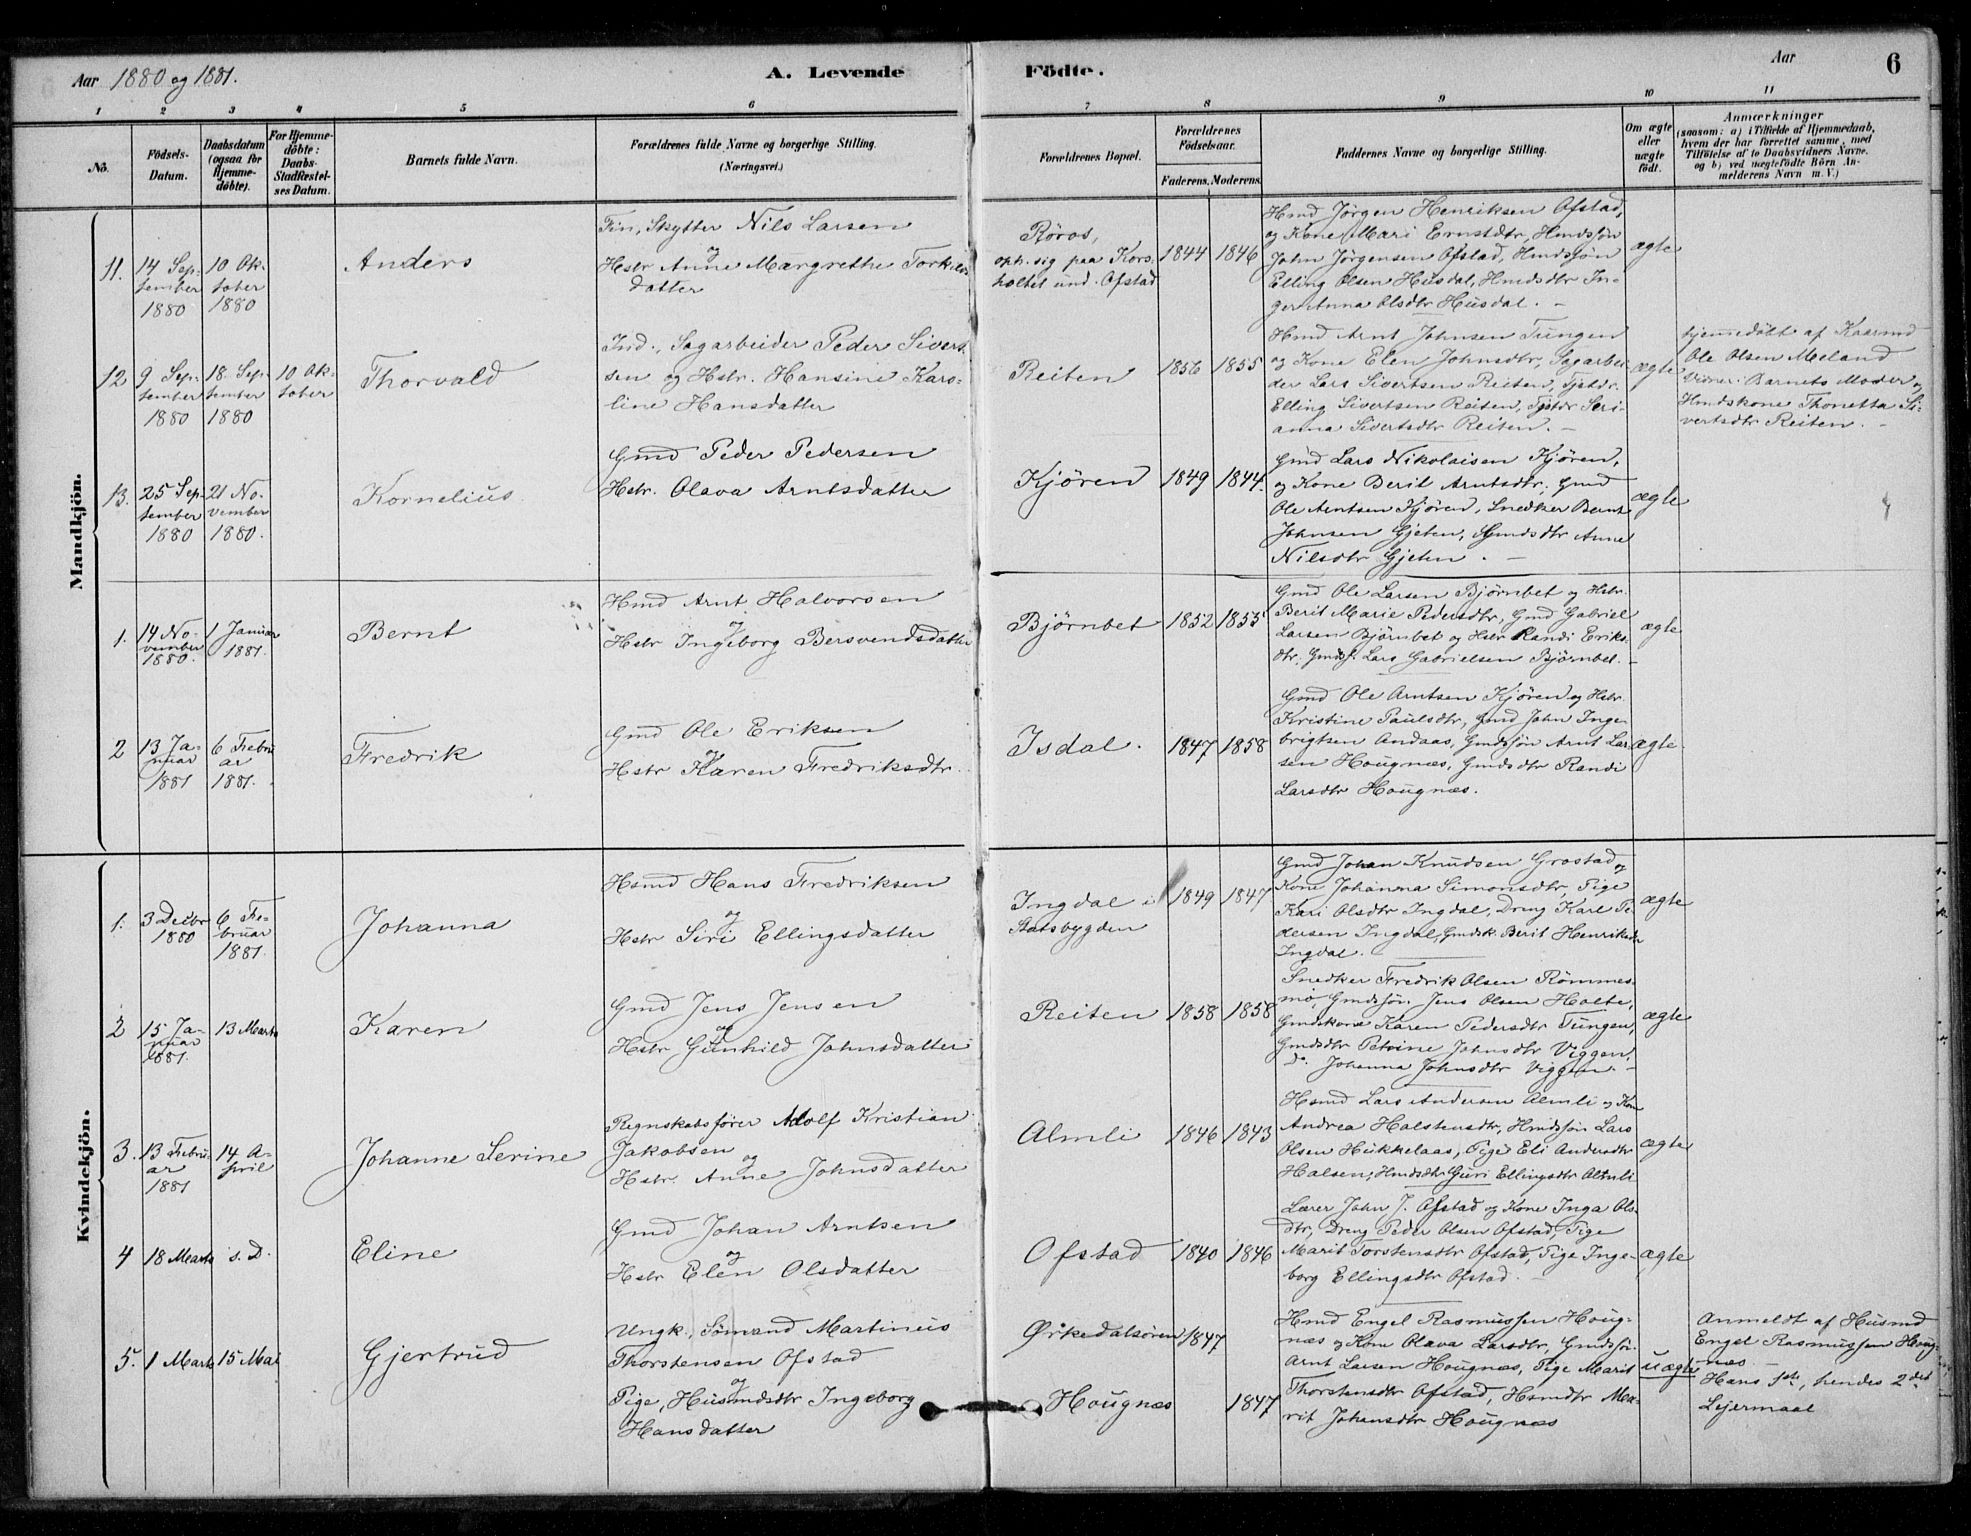 Aar 1880 og 1881.
A. Levende Födte.
Aar
6
1 2 3 4 5 6 7 8 9 10 11
No.
Födsels-
Datum.
Daabsdatum
(ogsaa for
Hjemme-
döbte).
For Hjemme-
döbte:
Daabs-
Stadfæstel-
ses Datum.
Barnets fulde Navn.
Forældrenes fulde Navne og borgerlige Stilling.
(Næringsvei.)
Forældrenes Bopæl.
Forældrenes
Födselsaar.
Faderens. Moderens.
Faddernes Navne og borgerlige Stilling.
Om ægte
eller
uægte
födt.
Anmærkninger
(saasom: a) i Tilfælde af Hjemmedaab,
hvem der har forrettet samme, med
Tilföielse af to Daabsvidners Navne.
og b) ved uægtefödte Börn An-
melderens Navn m. V.)
Mandkjön.
11.
14 Sep-
tember
1880
10 Ok-
tober
1880
Anders
Fin, Skytter Nils Larsen
og
Hstr Anne Margrethe Torkilds
datter
Röros,
oph. sig paa Kors-
holtet und. Ofstad
1844
1846
Hmd Jörgen Henriksen Ofstad,
og Kone Mari Ernstdtr, Hmdssön
John Jörgensen Ofstad, Hmdssön
Elling Olsen Husdal, Hmdsdtr In-
ger Anna Olsdtr Husdal. –
ægte
12
9 Sep-
tember
1880
18 Sep-
tember
1880
10 Ok-
tober
Thorvald
Ind., Sagarbeider Peder Sivert-
sen og Hstr. Hansine Karo-
line Hansdatter
Reiten
1856
1855
Hmd Arnt Johnsen Tungen
og Kone Elen Johnsdtr, Sagarbei-
der Lars Sivertsen Reiten, Tjstdr.
Elling Sivertsen Reiten, Tjstdr Seri-
anna Sivertsdtr Reiten. –
ægte
hjemmedöbt af Kaarmd
Ole Olsen Meeland
Vidner: Barnets Moder og
Hmdskone Thonetta Si-
vertsdtr Reiten. –
13.
25 Sep-
tember
1880
21 No-
vember
1880.
Kornelius
Gmd Peder Pedersen
Hstr. Olava Arntsdatter
Kjören
1849
1844.
Gmd Lars Nikolaisen Kjören,
og Kone Berit Arntsdtr, Gmd
Ole Arntsen Kjören, Snedker Bernt
Johnsen Gjeten, Gmdsdtr Anne
Nilsdtr Gjeten. –
ægte
1.
14 No-
vember
1880.
1 Januar
1881.
Bernt
Hmd Arnt Halvorsen
og
Hstr Ingeborg Bersvendsdatter
Björnbet
1852
1855
Gmd Ole Larsen Björnbet og Hstr.
Berit Marie Pedersdtr, Gmd Gabriel
Larsen Björnbet og Hstr Randi Eriks-
dtr. Gmdsf. Lars Gabrielsen Björnbet. –
ægte
2
13 Ja-
nuar
1881
6 Febru
ar
1881.
Fredrik
Gmd Ole Eriksen
og
Hstr Karen Fredriksdtr.
Isdal.
1847
1858
Gmd Ole Arntsen Kjören og Hstr.
Kristine Paulsdtr, Gmd John Inge-
brigtsen Andaas, Gmdssön Arnt Lar-
sen Hougnæs, Gmdsdtr Randi
Larsdtr Hougnæs.
ægte.
Kvindekjön.
1.
3 Decbr
1880
6 Fe-
bruar
1881.
Johanna
Hsmd Hans Fredriksen
og
Hstr Siri Ellingsdatter
Ingdal i
Statsbygden
1849
1847
Gmd Johan Knudsen Grostad og
Kone Johanna Simonsdtr, Pige
Kari Olsdtr Ingdal, Dreng Karl Pe-
dersen Ingdal, Gmdsk. Berit Henriksdr
Ingdal.
ægte
2
15 Ja-
nuar
1881.
13 Marts
Karen
Gmd Jens Jensen
og
Hstr Gunhild Johnsdatter
Reiten
1858
1858
Snedker Fredrik Olsen Römmes-
mo, Gmdssön. Jens Olsen Holte,
Gmdskone Karen Pedersdtr Tungen,
Gmdsdtr Petrine Johnsdtr Viggen,
do. Johanna Johnsdtr Viggen. –
ægte
3.
13 Febru
ar
1881
14 A-
pril
Johanne Serine
Regnskabsförer Adolf Kristian
Jakobsen
og
Hstr. Anne Johnsdatter
Almli
1846
1843
Hsmd Lars Andersen Almli og Kone
Andrea Halstensdtr, Hmdssön Lars
Olsen Hukkelaas, Pige Eli Andersdtr
Halsen, Hmdsdtr Guri Ellingsdtr Almli
ægte
4
18 Marts
s. D.
Eline
Gmd Johan Arntsen
og
Hstr Elen Olsdatter
Ofstad
1840
1846
Lærer John J. Ofstad og Kone Inga Ols-
dtr, Dreng Peder Olsen Ofstad, Pige
Marit Torstensdtr Ofstad, Pige Inge-
borg Ellingsdtr Ofstad. –
ægte
5.
1 Marts
15 Mai
Gjertrud
Ungk., Sömand Martinus
Thorstensen Ofstad
og
Pige, Husmdsdtr Ingeborg
Hansdatter
Ørkedalsören
Hougnæs
1847
1847
Hmd Engel Rasmussen Houg-
næs og Kone Olava Larsdtr, Gmdssön
Arnt Larsen Hougnæs, Pige Marit
Thorstensdtr Ofstad, Hsmdtr Ma-
rit Johansdtr Hougnæs
uægte
Anmeldt af Husmd
Engel Rasmussen Houg-
næs
Hans 1ste, hendes 2det
Lejermaal